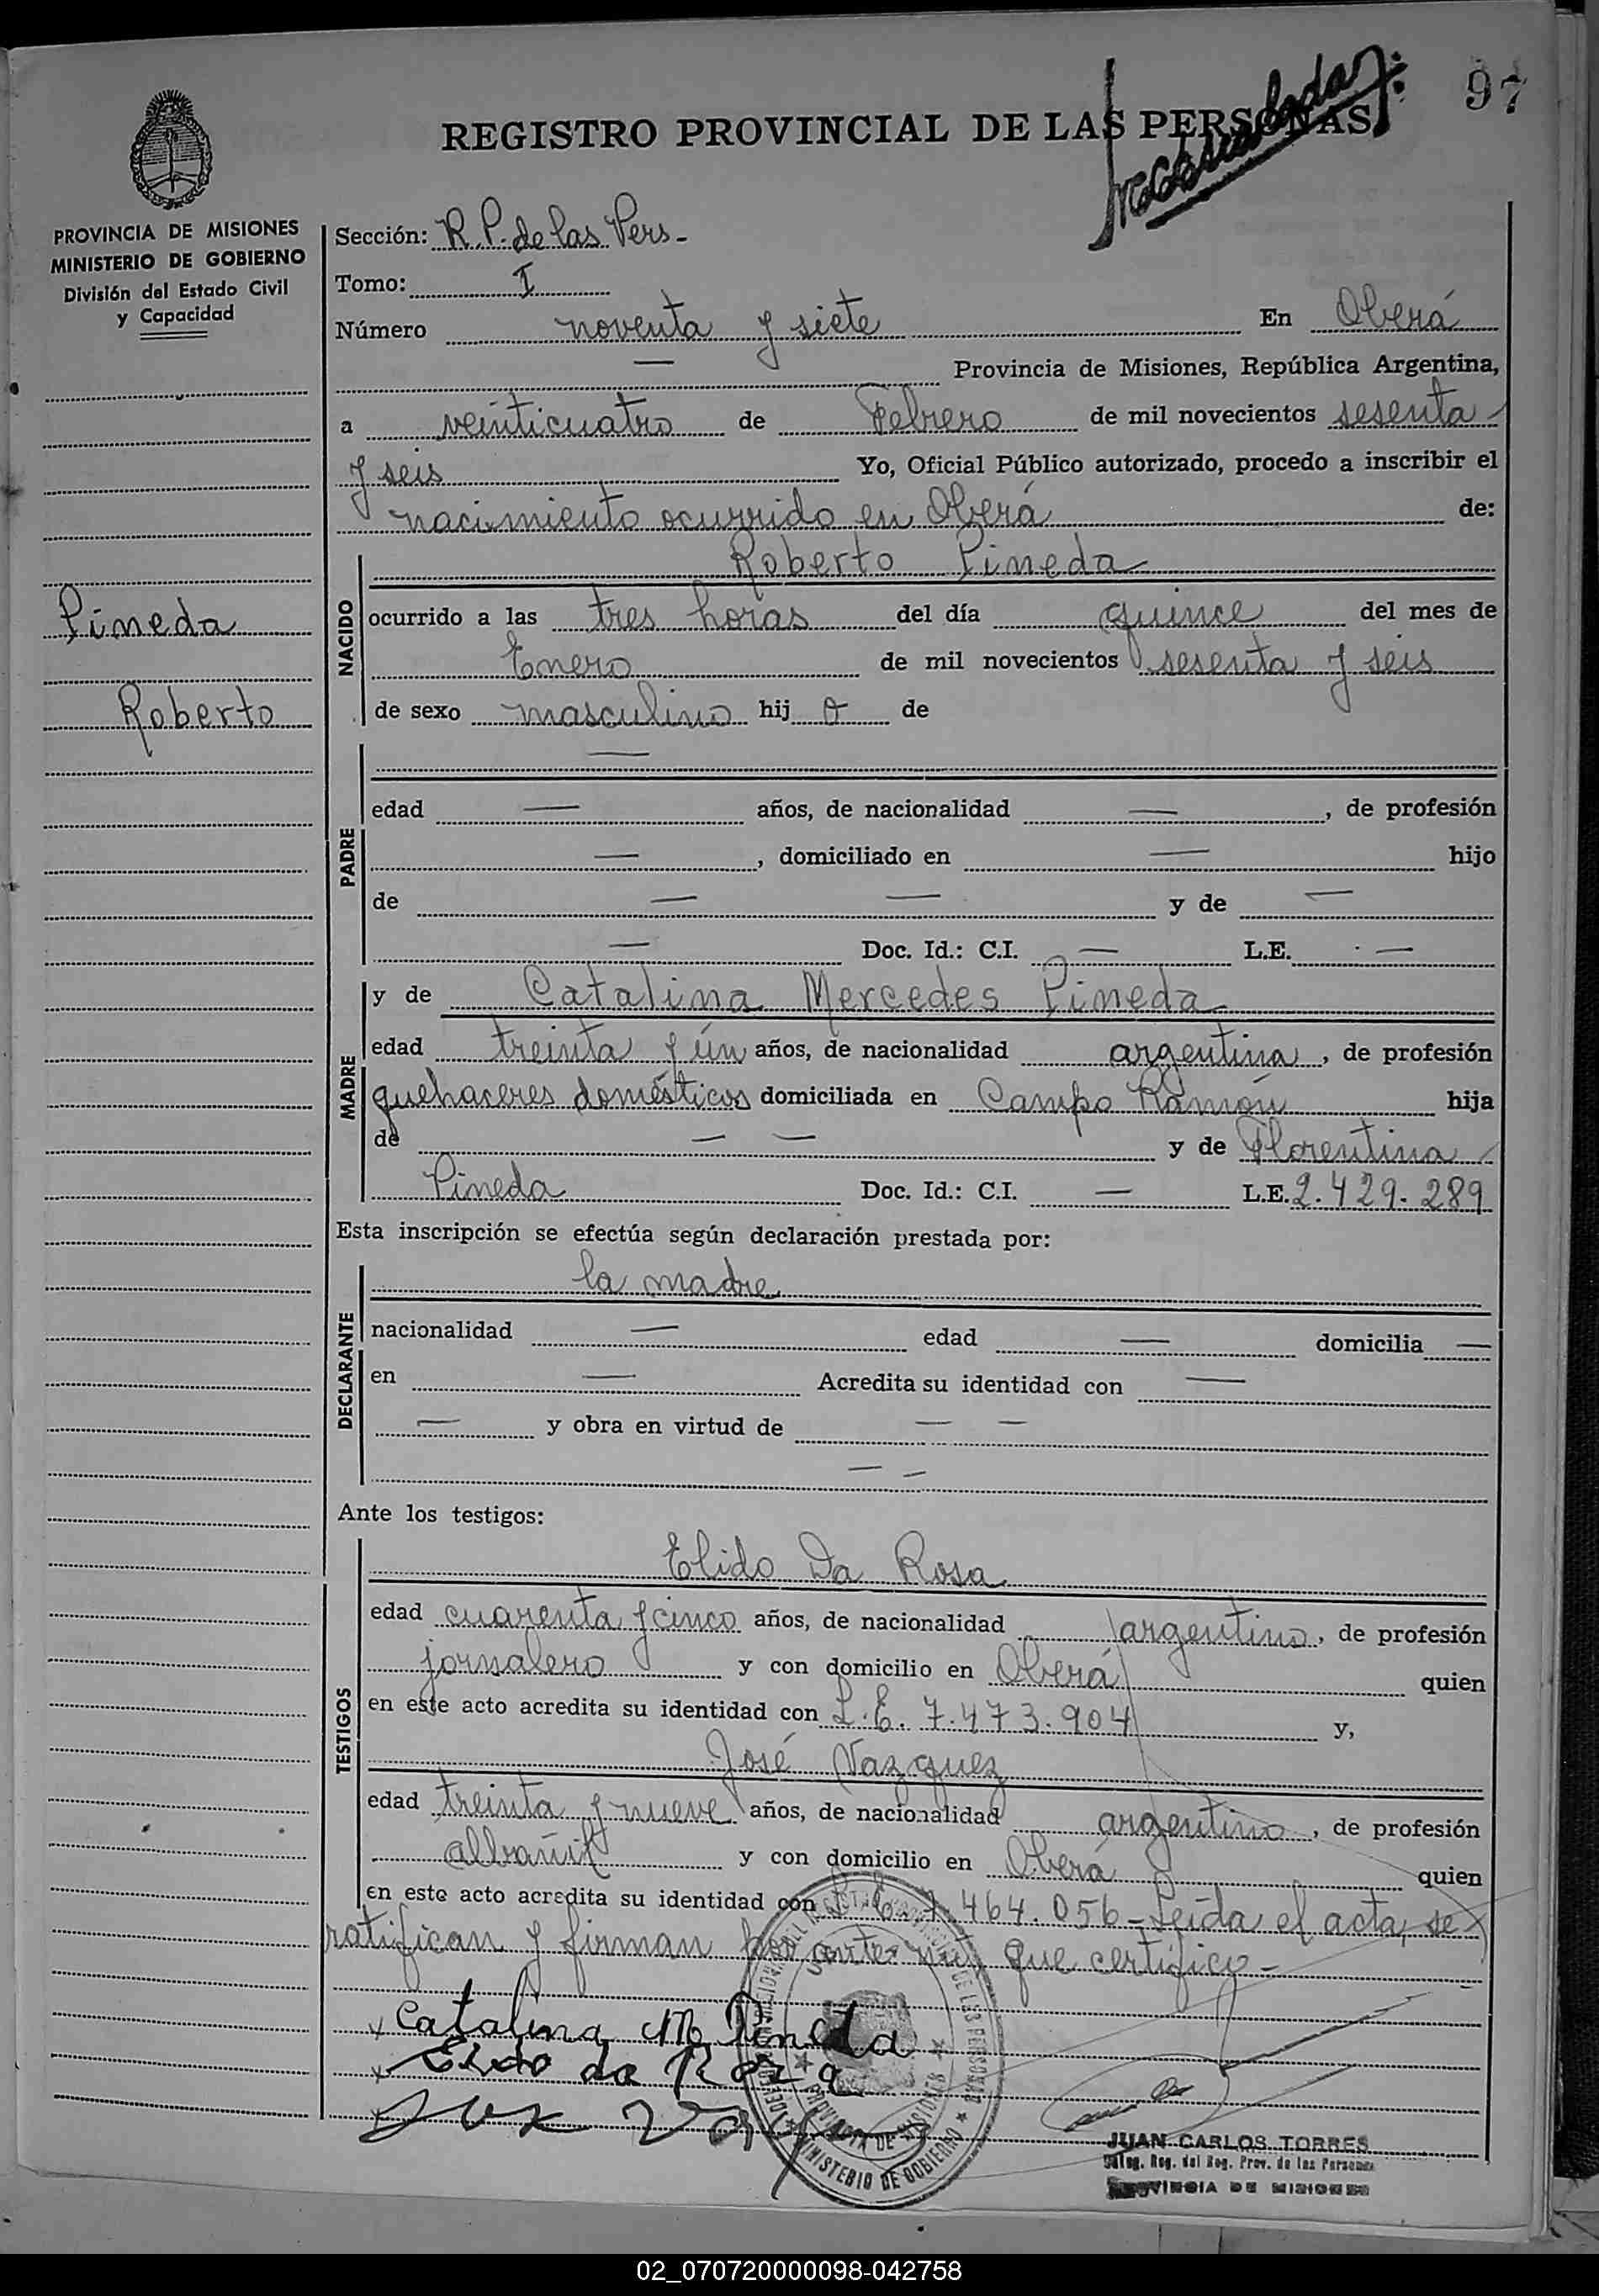 97
REGISTRO PROVINCIAL DE LAS PERSONAS
PROVINCIA DE MISIONES
MINISTERIO DE GOBIERNO
División del Estado Civil
y Capacidad
Pineda
Roberto
Sección: R. P. de las Pers-
Tomo: I
Número noventa y siete En Oberá
— Provincia de Misiones, República Argentina,
a veinticuatro de Febrero de mil novecientos sesenta
y seis Yo, Oficial Público autorizado, procedo a inscribir el
nacimiento ocurrido en Oberá de:
NACIDO
Roberto Pineda
ocurrido a las tres horas del día quince del mes de
Enero de mil novecientos sesenta y seis
de sexo masculino hij o de
PADRE
—
edad — años, de nacionalidad —, de profesión
—, domiciliado en — hijo
de — — y de —
— Doc. Id.: C.I. — L.E. —
MADRE
y de Catalina Mercedes Pineda
edad treinta y ún años, de nacionalidad argentina, de profesión
quehaceres domésticos domiciliada en Campo Ramón hija
de — — y de Florentina
Pineda Doc. Id.: C.I. — L.E. 2.429.289
Esta inscripción se efectúa según declaración prestada por:
DECLARANTE
la madre
nacionalidad — edad — domicilia —
en — Acredita su identidad con —
— y obra en virtud de — —
— —
Ante los testigos:
TESTIGOS
Elido Da Rosa
edad cuarenta y cinco años, de nacionalidad argentino, de profesión
jornalero y con domicilio en Oberá quien
en este acto acredita su identidad con L.E. 7.473.904 y,
José Vazquez
edad treinta y nueve años, de nacionalidad argentino, de profesión
albañil y con domicilio en Oberá quien
en este acto acredita su identidad con L.E. 7.464.056- Leída el acta, se
ratifican y firman por ante mi que certifico-
x Catalina M Pineda
x Elido da Roza
x
MINISTERIO DE GOBIERNO
PROVINCIA DE MISIONES
JUAN CARLOS TORRES
Deleg. Reg. del Reg. Prov. de las Personas
PROVINCIA DE MISIONES
02_070720000098-042758